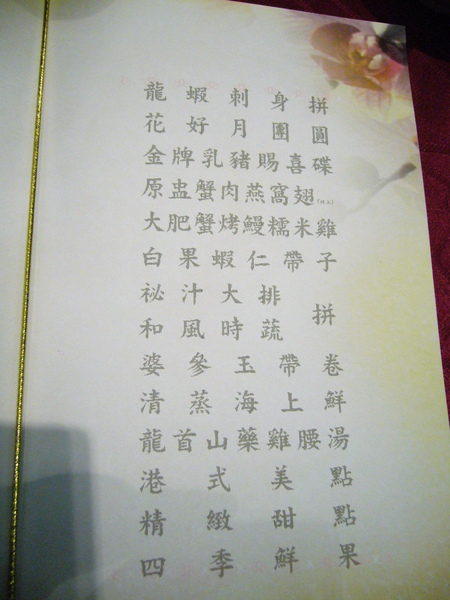 龍蝦刺身拼
花好月團圓
金牌乳豬賜喜碟
原盅蟹肉燕窩翅
大肥蟹烤鰻糯米雞
白果蝦仁帶子
祕汁大排
拼
和風時蔬
婆參玉帶卷
清蒸海上鮮
龍首山藥雞腰湯
港式美點
精緻甜點
四季鮮果